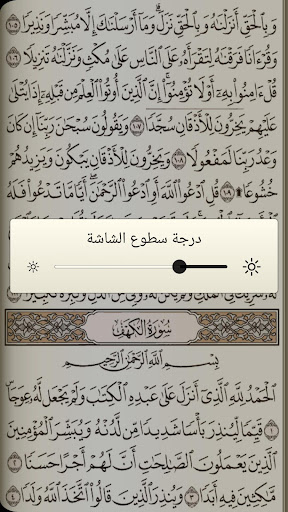 وَبِالْحَقِّ أَنزَلْنَٰهُ وَبِالْحَقِّ نَزَلَ ۗ وَمَا أَرْسَلْنَٰكَ إِلَّا مُبَشِّرًا وَنَذِيرًا ١٠٥
وَقُرْءَانًا فَرَقْنَٰهُ لِتَقْرَأَهُۥ عَلَى النَّاسِ عَلَىٰ مُكْثٍ وَنَزَّلْنَٰهُ تَنزِيلًا ١٠٦
قُلْ ءَامِنُوا بِهِۦٓ أَوْ لَا تُؤْمِنُوٓا ۚ إِنَّ الَّذِينَ أُوتُوا الْعِلْمَ مِن قَبْلِهِۦٓ إِذَا يُتْلَىٰ
عَلَيْهِمْ يَخِرُّونَ لِلْأَذْقَانِ سُجَّدًا ١٠٧ وَيَقُولُونَ سُبْحَٰنَ رَبِّنَا إِن كَانَ
وَعْدُ رَبِّنَا لَمَفْعُولًا ١٠٨ وَيَخِرُّونَ لِلْأَذْقَانِ يَبْكُونَ وَيَزِيدُهُمْ
خُشُوعًا ۩ ١٠٩ قُلِ ادْعُوا اللَّهَ أَوِ ادْعُوا الرَّحْمَٰنَ ۖ أَيًّا مَّا تَدْعُوا فَلَهُ
درجة سطوع الشاشة
سُورَةُ الْكَهْفِ
بِسْمِ اللَّهِ الرَّحْمَٰنِ الرَّحِيمِ
الْحَمْدُ لِلَّهِ الَّذِىٓ أَنزَلَ عَلَىٰ عَبْدِهِ الْكِتَٰبَ وَلَمْ يَجْعَل لَّهُۥ عِوَجَا ١
قَيِّمًا لِّيُنذِرَ بَأْسًا شَدِيدًا مِّن لَّدُنْهُ وَيُبَشِّرَ الْمُؤْمِنِينَ
الَّذِينَ يَعْمَلُونَ الصَّٰلِحَٰتِ أَنَّ لَهُمْ أَجْرًا حَسَنًا ٢
مَّٰكِثِينَ فِيهِ أَبَدًا ٣ وَيُنذِرَ الَّذِينَ قَالُوا اتَّخَذَ اللَّهُ وَلَدًا ٤